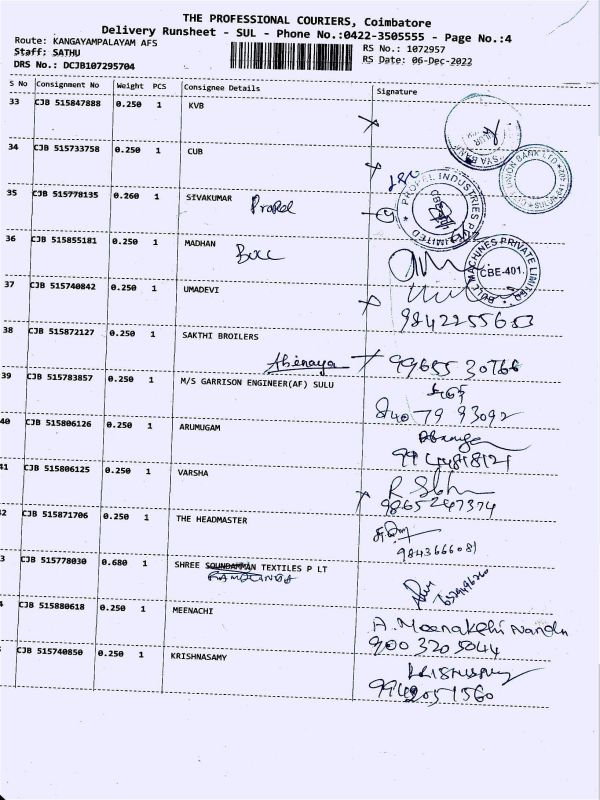 THE PROFESSIONAL COURIERS, Coimbatore
Delivery Runsheet - SUL - Phone No.:0422-3505555 - Page No.:4
Route: KANGAYAMPALAYAM AFS
RS No.: 1072957
Staff: SATHU
RS Date: 06-Dec-2022
DRS No.: DCJB107295704
S No Consignment No Weight PCS Consignee Details Signature
33 CJB 515847888 0.250 1 KVB
34 CJB 515733758 0.250 1 CUB
UNION BANK LTD
35 CJB 515778135 0.260 1 SIVAKUMAR Propel
PROPEL INDUSTRIES P LIMITED
36 CJB 515855181 0.250 1 MADHAN Bull
BULL MACHINES PRIVATE LIMITED
CBE-401.
37 CJB 515740842 0.250 1 UMADEVI
9842255653
38 CJB 515872127 0.250 1 SAKTHI BROILERS
Abenaya 99655 30766
39 CJB 515783857 0.250 1 M/S GARRISON ENGINEER(AF) SULU
840 79 93092
40 CJB 515806126 0.250 1 ARUMUGAM
41 CJB 515806125 0.250 1 VARSHA
9865247374
2 CJB 515871706 0.250 1 THE HEADMASTER
9843666081
3 CJB 515778030 0.680 1 SHREE TEXTILES P LT
CJB 515880618 0.250 1 MEENACHI
A. Meenakshi Nandn
900 320 5044
CJB 515740850 0.250 1 KRISHNASAMY
9942051560